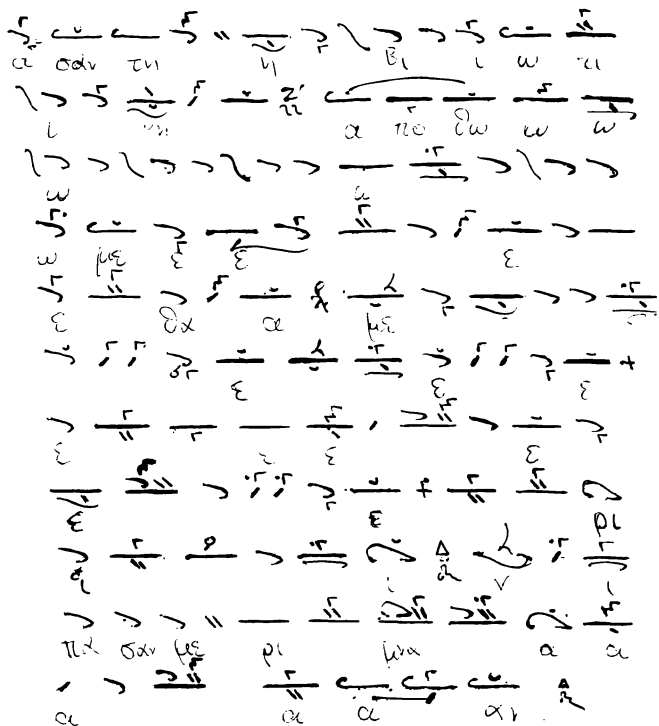 α σάν τη η βι ι ω τι
ι κη α πο θω ω ω
ω ω
ω με ε ε ε
ε θα α με
ε ε ε
ε ε ε ε
ε ε ρι
ι ν ι
πα σαν με ρι μνα α α
α α α αν